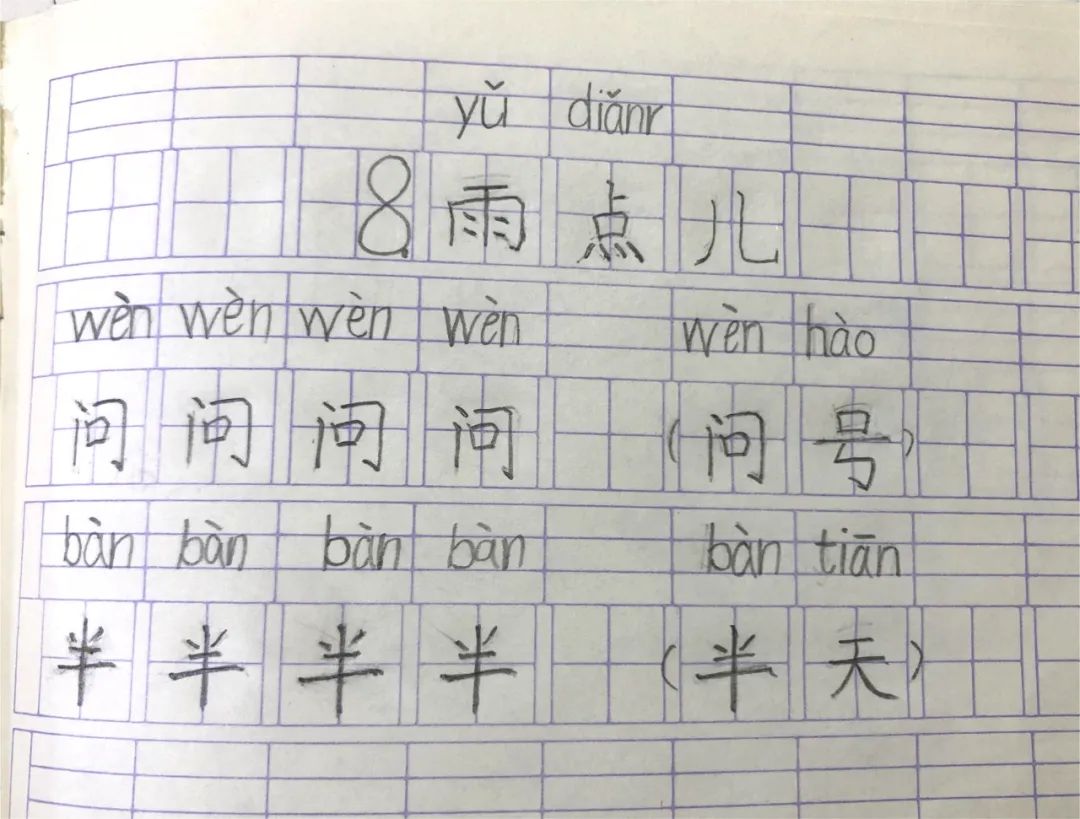 yǔ diǎnr
8 雨点儿
wèn wèn wèn wèn wèn hào
问 问 问 问 (问号)
bàn bàn bàn bàn bàn tiān
半 半 半 半 (半天)